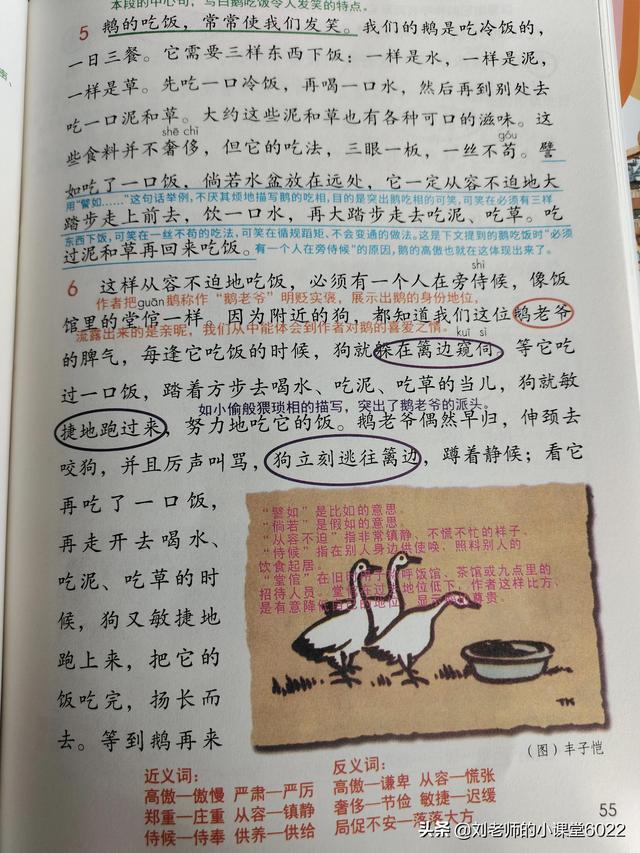 本段的中心句，写白鹅吃饭令人发笑的特点。
5 鹅的吃饭，常常使我们发笑。我们的鹅是吃冷饭的，
一日三餐。它需要三样东西下饭：一样是水，一样是泥，
一样是草。先吃一口冷饭，再喝一口水，然后再到别处去
吃一口泥和草。大约这些泥和草也有各种可口的滋味。这
shē chǐ
gǒu
些食料并不奢侈，但它的吃法，三眼一板，一丝不苟。譬
如吃了一口饭，倘若水盆放在远处，它一定从容不迫地大
用“譬如……”这句话举例，不厌其烦地描写鹅的吃相，目的是突出鹅吃相的可笑，可笑在必须有三样
踏步走上前去，饮一口水，再大踏步走去吃泥、吃草。吃
东西下饭，可笑在一丝不苟的吃法，可笑在循规蹈矩、不会变通的做法。这是下文提到的鹅吃饭时“必须
过泥和草再回来吃饭。
有一个人在旁侍候”的原因，鹅的高傲也就在这体现出来了。
shì
6 这样从容不迫地吃饭，必须有一个人在旁侍候，像饭
作者把鹅称作“鹅老爷”明贬实褒，展示出鹅的身份地位，
guān
馆里的堂倌一样。因为附近的狗，都知道我们这位鹅老爷
流露出来的是亲昵，我们从中能体会到作者对鹅的喜爱之情。
kuī sì
的脾气，每逢它吃饭的时候，狗就躲在篱边窥伺。等它吃
过一口饭，踏着方步去喝水、吃泥、吃草的当儿，狗就敏
如小偷般猥琐相的描写，突出了鹅老爷的派头。
捷地跑过来，努力地吃它的饭。鹅老爷偶然早归，伸颈去
咬狗，并且厉声叫骂，狗立刻逃往篱边，蹲着静候；看它
再吃了一口饭，
再走开去喝水、
吃泥、吃草的时
候，狗又敏捷地
跑上来，把它的
饭吃完，扬长而
去。等到鹅再来
“譬如”是比如的意思
“倘若”是假如的意思
“从容不迫”指非常镇静、不慌不忙的样子、
“侍候”指在别人身边供使唤、照料别人的
饮食起居。
“堂倌”在旧时
呼饭馆、茶馆或九点里的
招待人员。
地位低下，作者这样比方、
是有意降低
TK
（图）丰子恺
近义词：
高傲—傲慢 严肃—严厉
郑重—庄重 从容—镇静
侍候—侍奉 供养—供给
反义词：
高傲—谦卑 从容—慌张
奢侈—节俭 敏捷—迟缓
局促不安—落落大方
55
头条 @刘老师的小课堂6022